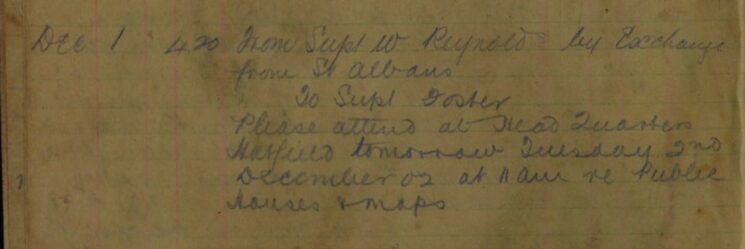 Dec 1 4.20 From Supt W Reynolds by Exchange
from St Albans
To Supt Foster
Please attend at Head Quarters
Hatfield tomorrow Tuesday 2nd
December 02 at 11 am re Public
Houses & maps